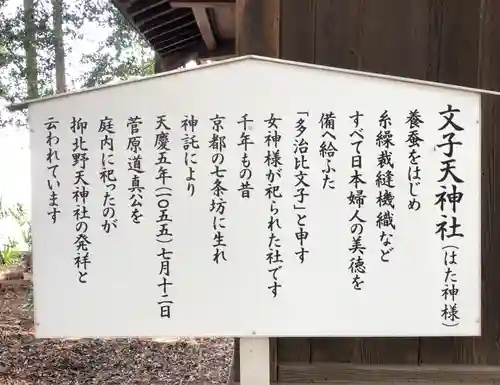 文子天神社(はた神様)
養蚕をはじめ
糸繰裁縫機織など
すべて日本婦人の美徳を
備へ給ふた
「多治比文子」と申す
女神様が祀られた社です
千年もの昔
京都の七条坊に生れ
神託により
天慶五年(一〇五五)七月十二日
菅原道真公を
庭内に祀ったのが
抑北野天神社の発祥と
云われています